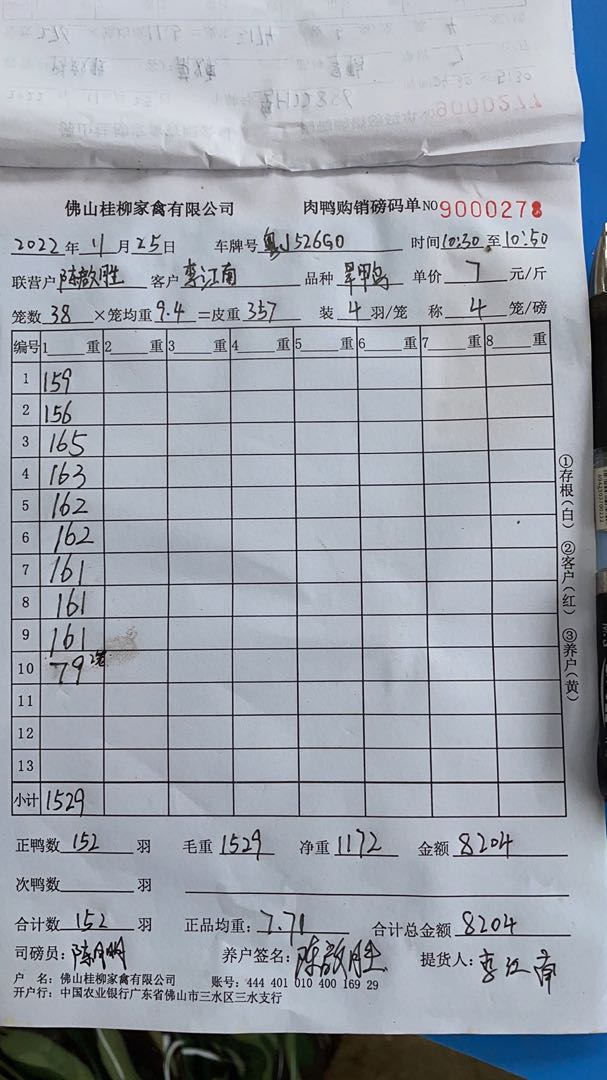 9000277
佛山桂柳家禽有限公司 肉鸭购销磅码单 NO 9000278
2022年11月25日 车牌号 粤J526G0 时间10:30至10:50
联营户 陈敬胜 客户 李江南 品种 旱甲鸟 单价 7 元/斤
笼数 38 ×笼均重 9.4 =皮重 357 装 4 羽/笼 称 4 笼/磅
编号 1 重 2 重 3 重 4 重 5 重 6 重 7 重 8 重
1 159
2 156
3 165
4 163
5 162
6 162
7 161
8 161
9 161
10 79 2笼
11
12
13
小计 1529
①存根(白) ②客户(红) ③养户(黄)
正鸭数 152 羽 毛重 1529 净重 1172 金额 8204
次鸭数 羽
合计数 152 羽 正品均重: 7.71 合计总金额 8204
司磅员: 养户签名: 陈敬胜 提货人: 李江南
户 名: 佛山桂柳家禽有限公司 账号: 444 401 010 400 169 29
开户行: 中国农业银行广东省佛山市三水区三水支行